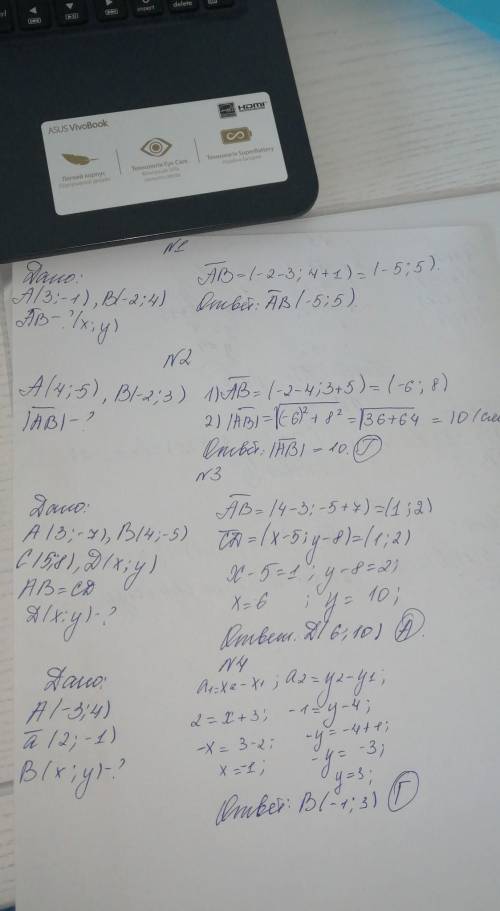 insert
delete
ASUS VivoBook
HDMI
Легкий корпус
Технология Eye Care
Технология SuperBattery
N1
Дано:
A(3;-1), B(-2;4)
AB-?(x;y)
AB=(-2-3; 4+1)=(-5;5).
Ответ: AB(-5;5).
N2
A(4;-5), B(-2;3)
|AB|-?
1) AB=(-2-4; 3+5)=(-6;8)
2) |AB|=√(-6)²+8²=√36+64=10
Ответ: |AB|=10. Г
N3
Дано:
A(3;-7), B(4;-5)
C(5;8), D(x;y)
AB=CD
D(x;y)-?
AB=(4-3; -5+7)=(1;2)
CD=(x-5; y-8)=(1;2)
x-5=1; y-8=2;
x=6 ; y=10;
Ответ. D(6;10) А.
N4
Дано:
A(-3;4)
a(2;-1)
B(x;y)-?
a1=x2-x1; a2=y2-y1;
2=x+3; -1=y-4;
-x=3-2; -y=-4+1;
x=-1; -y=-3;
y=3;
Ответ: B(-1;3) Г